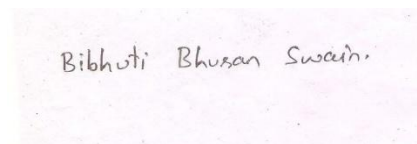 Bibhuti Bhusan Swain.